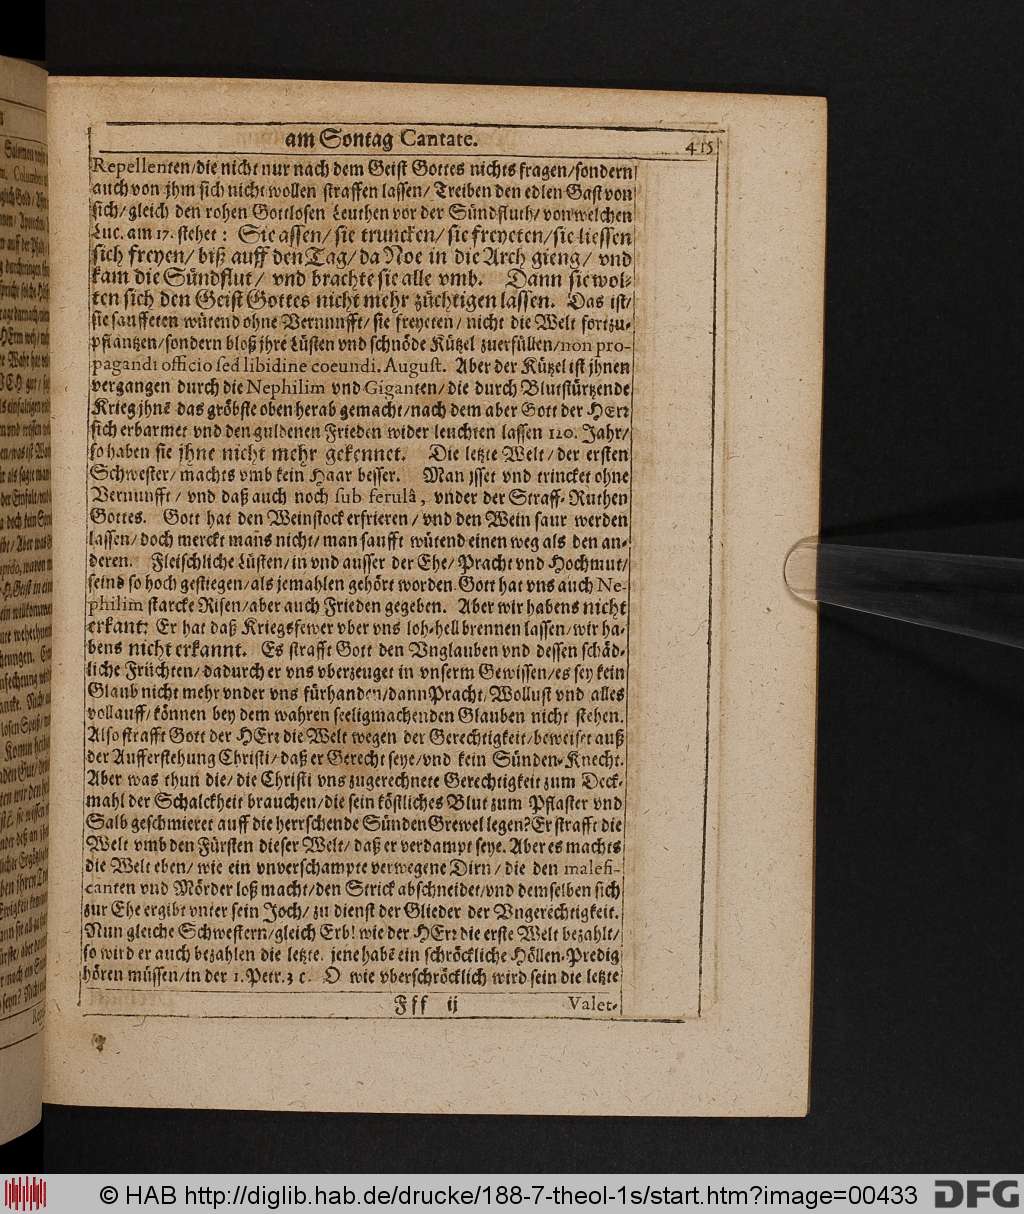 am Sontag Cantate. 415
Repellenten/die nicht nur nach dem Geist Gottes nichts fragen/sondern
auch von jhm sich nicht wollen straffen lassen/ Treiben den edlen Gast von
sich/ gleich den rohen Gottlosen Leuthen vor der Sündfluth/ von welchen
Luc. am 17. stehet: Sie assen/ sie truncken/ sie freyeten/ sie liessen
sich freyen/ biß auff den Tag/ da Noe in die Arch gieng/ vnd
kam die Sündflut/ vnd brachte sie alle vmb. Dann sie wol-
ten sich den Geist Gottes nicht mehr züchtigen lassen. Das ist/
sie sauffeten wütend ohne Vernunfft/ sie freyeten/ nicht die Welt fortzu-
pflantzen/sondern bloß jhre Lüsten vnd schnöde Kützel zuerfüllen/non pro-
pagandi officio sed libidine coeundi. August. Aber der Kützel ist jhnen
vergangen durch die Nephilim vnd Giganten/ die durch Blutstürtzende
Krieg jhnē das gröbste oben herab gemacht/nach dem aber Gott der HErr
sich erbarmet vnd den guldenen Frieden wider leuchten lassen 120. Jahr/
so haben sie jhne nicht mehr gekennet. Die letzte Welt/ der ersten
Schwester/ machts vmb kein Haar besser. Man jsset vnd trincket ohne
Vernunfft/ vnd daß auch noch sub ferulâ, vnder der Straff-Ruthen
Gottes. Gott hat den Weinstock erfrieren/ vnd den Wein saur werden
lassen/ doch merckt mans nicht/ man saufft wütend einen weg als den an-
deren. Fleischliche Lüsten/ in vnd ausser der Ehe/ Pracht vnd Hochmut/
seind so hoch gestiegen/als jemahlen gehört worden. Gott hat vns auch Ne-
philim starcke Risen/aber auch Frieden gegeben. Aber wir habens nicht
erkant: Er hat daß Kriegsfewer vber vns loh-hell brennen lassen/ wir ha-
bens nicht erkannt. Es strafft Gott den Vnglauben vnd dessen schäd-
liche Früchten/ dadurch er vns vberzeuget in vnserm Gewissen/ es sey kein
Glaub nicht mehr vnder vns fürhanden/ dann Pracht/ Wollust vnd alles
vollauff/ können bey dem wahren seeligmachenden Glauben nicht stehen.
Also strafft Gott der HErr die Welt wegen der Gerechtigkeit/ beweiset auß
der Aufferstehung Christi/ daß er Gerecht seye/vnd kein Sünden-Knecht.
Aber was thun die/ die Christi vns zugerechnete Gerechtigkeit zum Deck-
mahl der Schalckheit brauchen/die sein köstliches Blut zum Pflaster vnd
Salb geschmieret auff die herrschende Sünden Grewel legen? Er strafft die
Welt vmb den Fürsten dieser Welt/ daß er verdampt seye. Aber es machts
die Welt eben/ wie ein vnverschampte verwegene Dirn/ die den malefi-
canten vnd Mörder loß macht/den Strick abschneidet/vnd demselben sich
zur Ehe ergibt vnter sein Joch/ zu dienst der Glieder der Vngerechtigkeit.
Nun gleiche Schwestern/gleich Erb! wie der HErr die erste Welt bezahlt/
so wird er auch bezahlen die letzte. jene habē ein schröckliche Höllen-Predig
hören müssen/in der 1. Petr. 3 c. O wie vberschröcklich wird sein die letzte
Fff ij Valet-
© HAB http://diglib.hab.de/drucke/188-7-theol-1s/start.htm?image=00433 DFG